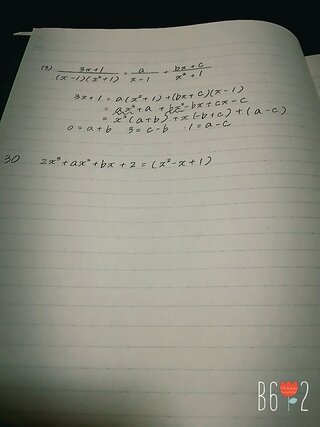 (3) 3x+1/(x-1)(x²+1) = a/x-1 + bx+c/x²+1
3x+1 = a(x²+1)+(bx+c)(x-1)
= ax²+a+bx²-bx+cx-c
= x²(a+b)+x(-b+c)+(a-c)
0=a+b 3=c-b 1=a-c
30 2x³+ax²+bx+2=(x²-x+1)
B612